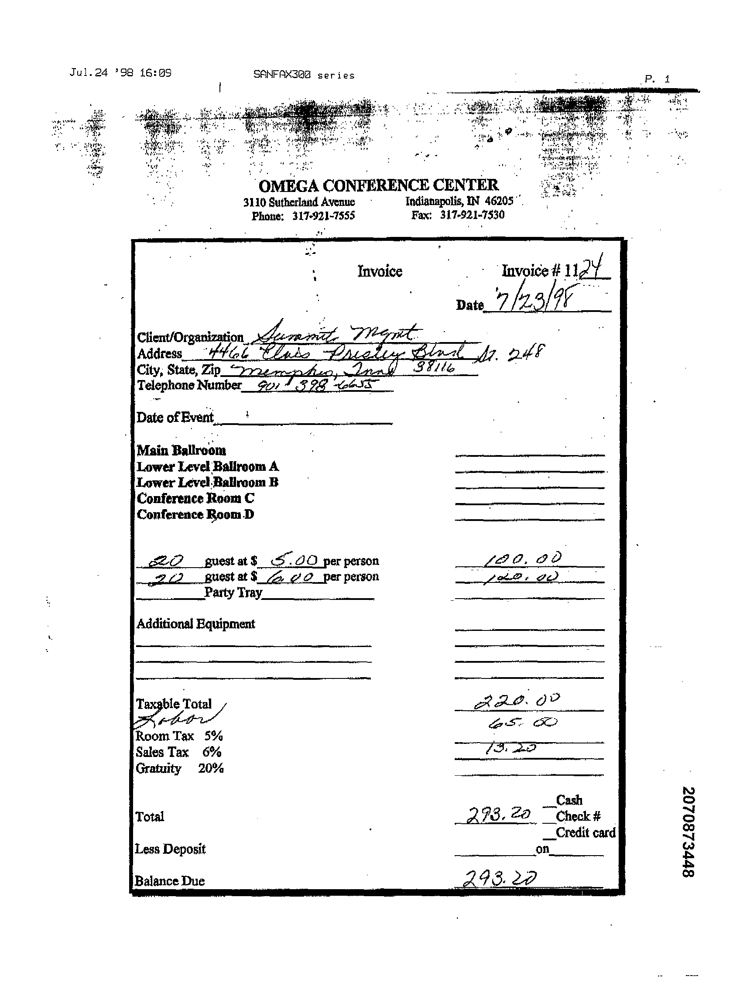 Jul.24 '98 16:09 SANFAX300 series P. 1
OMEGA CONFERENCE CENTER
3110 Sutherland Avenue Indianapolis, IN 46205
Phone: 317-921-7555 Fax: 317-921-7530
Invoice Invoice # 1124
Date 7/23/98
Client/Organization Summit Mgmt.
Address 4466 Elvis Presley Blvd St. 248
City, State, Zip Memphis, Tenn 38116
Telephone Number 901 398 6655
Date of Event
Main Ballroom
Lower Level Ballroom A
Lower Level Ballroom B
Conference Room C
Conference Room D
20 guest at $ 5.00 per person 100.00
20 guest at $ 6.00 per person 120.00
Party Tray
Additional Equipment
Taxable Total 220.00
Labor 65.00
Room Tax 5%
Sales Tax 6% 13.20
Gratuity 20%
Cash
Total 293.20 Check #
Credit card
Less Deposit on
Balance Due 293.20
2070873448